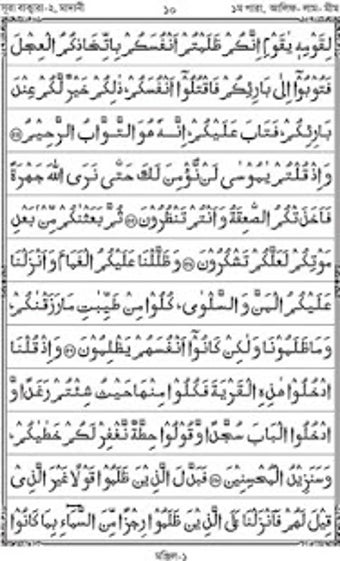 সূরা বাক্বারা-২, মাদানী ১০ ১ম পারা, আলিফ- লাম- মীম
لِقَوْمِهٖ يٰقَوْمِ اِنَّكُمْ ظَلَمْتُمْ اَنْفُسَكُمْ بِاتِّخَاذِكُمُ الْعِجْلَ
فَتُوْبُوْٓا اِلٰى بَارِئِكُمْ فَاقْتُلُوْٓا اَنْفُسَكُمْ ؕ ذٰلِكُمْ خَيْرٌ لَّكُمْ عِنْدَ
بَارِئِكُمْ ؕ فَتَابَ عَلَيْكُمْ ؕ اِنَّهٗ هُوَ التَّوَّابُ الرَّحِيْمُ ۝
وَاِذْ قُلْتُمْ يٰمُوْسٰى لَنْ نُّؤْمِنَ لَكَ حَتّٰى نَرَى اللّٰهَ جَهْرَةً
فَاَخَذَتْكُمُ الصّٰعِقَةُ وَاَنْتُمْ تَنْظُرُوْنَ ۝ ثُمَّ بَعَثْنٰكُمْ مِّنْۢ بَعْدِ
مَوْتِكُمْ لَعَلَّكُمْ تَشْكُرُوْنَ ۝ وَظَلَّلْنَا عَلَيْكُمُ الْغَمَامَ وَاَنْزَلْنَا
عَلَيْكُمُ الْمَنَّ وَالسَّلْوٰى ؕ كُلُوْا مِنْ طَيِّبٰتِ مَا رَزَقْنٰكُمْ ؕ
وَمَا ظَلَمُوْنَا وَلٰكِنْ كَانُوْٓا اَنْفُسَهُمْ يَظْلِمُوْنَ ۝ وَاِذْ قُلْنَا
ادْخُلُوْا هٰذِهِ الْقَرْيَةَ فَكُلُوْا مِنْهَا حَيْثُ شِئْتُمْ رَغَدًا وَّ
ادْخُلُوا الْبَابَ سُجَّدًا وَّقُوْلُوْا حِطَّةٌ نَّغْفِرْ لَكُمْ خَطٰيٰكُمْ ؕ
وَسَنَزِيْدُ الْمُحْسِنِيْنَ ۝ فَبَدَّلَ الَّذِيْنَ ظَلَمُوْا قَوْلًا غَيْرَ الَّذِيْ
قِيْلَ لَهُمْ فَاَنْزَلْنَا عَلَى الَّذِيْنَ ظَلَمُوْا رِجْزًا مِّنَ السَّمَآءِ بِمَا كَانُوْا
মঞ্জিল-১